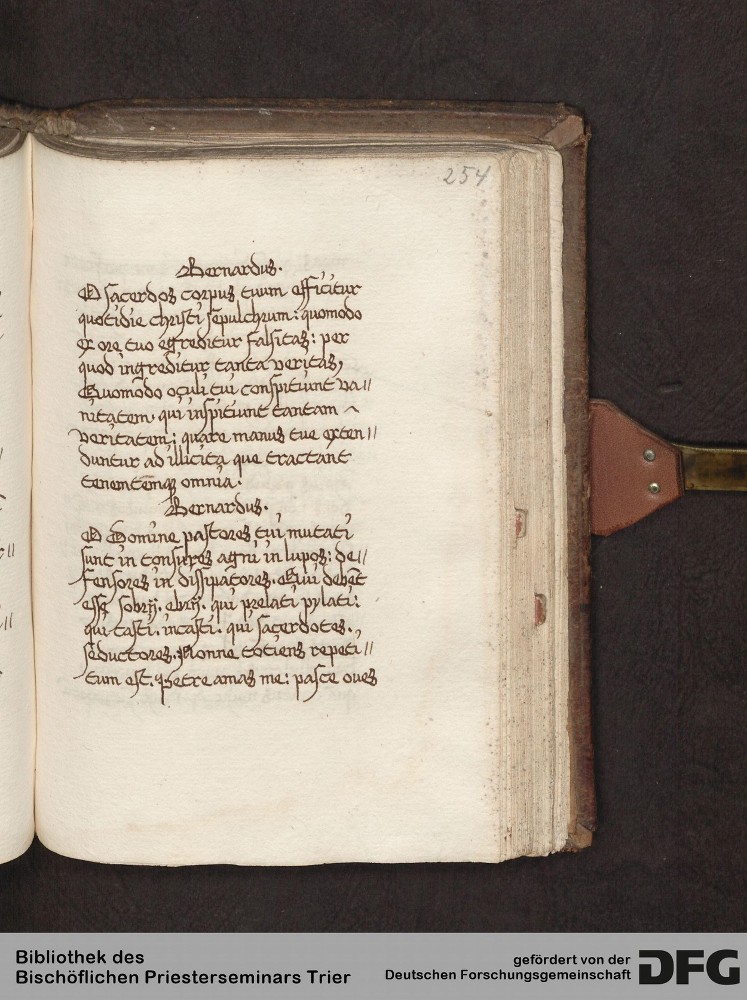 254
Bernardus.
O sacerdos corpus tuum efficitur
quotidie christi sepulchrum: quomodo
ex ore tuo egreditur falsitas: per
quod ingreditur tanta veritas,
Quomodo oculi tui conspitiunt va//
nitatem, qui inspitiunt tantam
veritatem: quare manus tue exten//
duntur ad illicita que tractant
tenentemque omnia.
Bernardus.
O Domine pastores tui mutati
sunt in tonsures agni in lupos: de//
fensores in dissipatores. Qui debent
esse sobrij. ebrij. qui prelati pylati:
qui casti. incasti. qui sacerdotes.
seductores. Nonne totiens repeti//
tum est. Petre amas me: pasce oves
Bibliothek des
Bischöflichen Priesterseminars Trier
gefördert von der
Deutschen Forschungsgemeinschaft
DFG